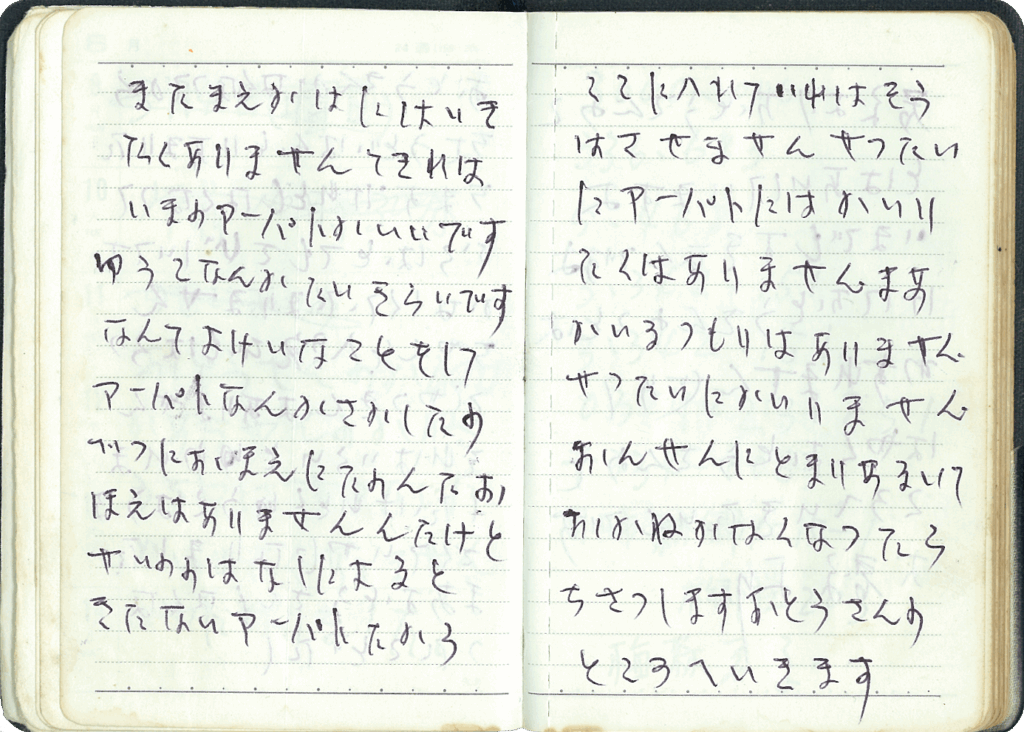 またまえかはにはいき
たくありませんてきれは
いまのアーパトがいいです
なんかたいきらいです
なんてよけいなことをして
アーパトなんかさかしたの
べつにおまえにたのんたお
ほえはありませんんたけと
はなしによると
きたないアーパトたから
に入れていればそう
はさせませんせつたい
にアーパトにはかいり
たくはありませんまあ
かいるつもりはありません
せつたいにかいりません
おんせんにとまりあるいて
おかねがなくなつたら
ちさつしますおとうさんの
ところへいきます